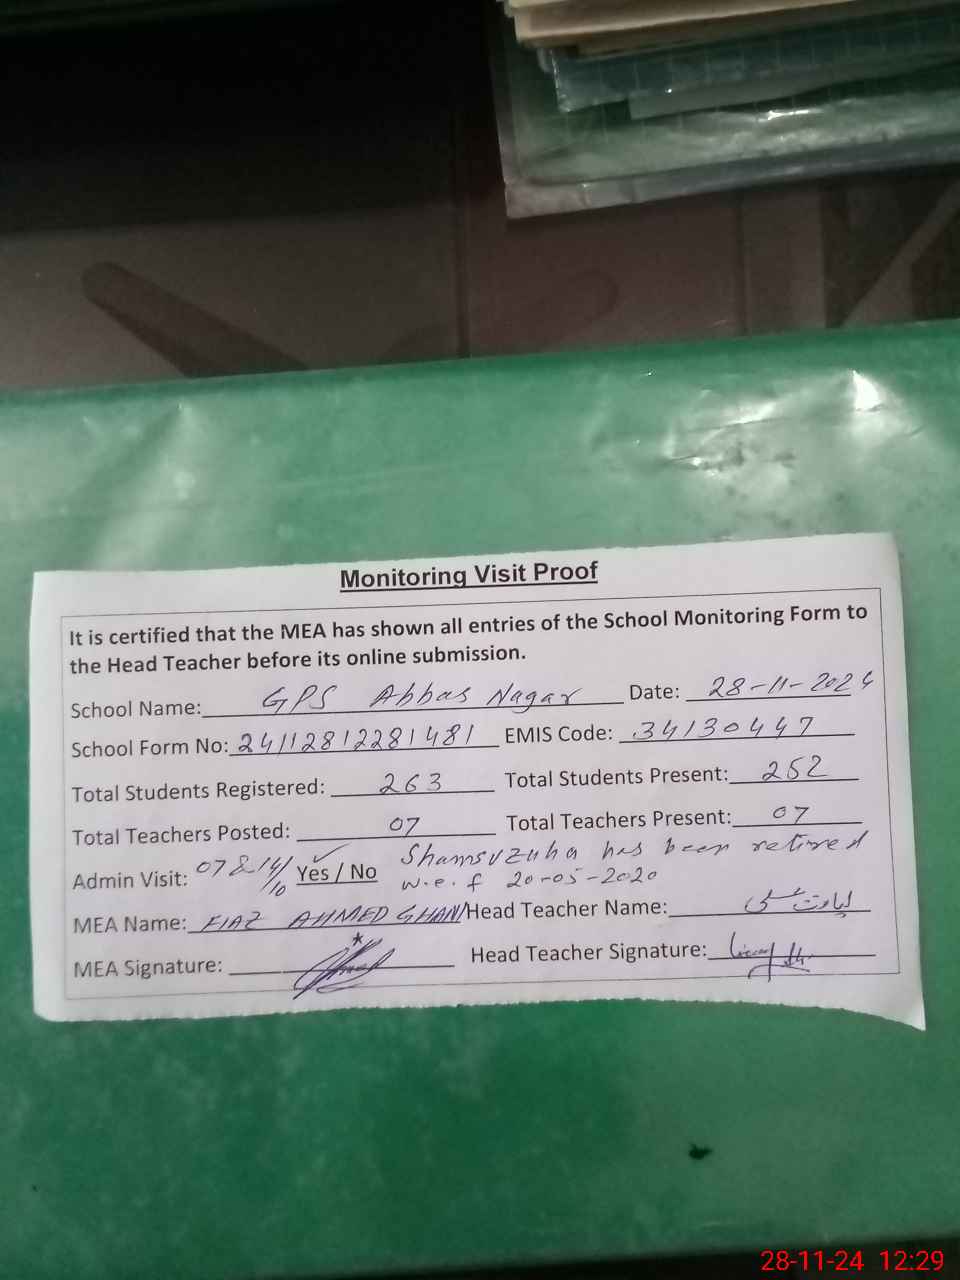 Monitoring Visit Proof
It is certified that the MEA has shown all entries of the School Monitoring Form to
the Head Teacher before its online submission.
School Name: GPS Abbas Nagar Date: 28-11-2024
School Form No: 24112812281481 EMIS Code: 34130447
Total Students Registered: 263 Total Students Present: 252
Total Teachers Posted: 07 Total Teachers Present: 07
Admin Visit: 07 & 14/10 Yes / No Shamsuzuha has been retired
w.e.f 20-05-2020
MEA Name: FIAZ AHMED GHANI Head Teacher Name: لیاقت علی
MEA Signature: Head Teacher Signature:
28-11-24 12:29